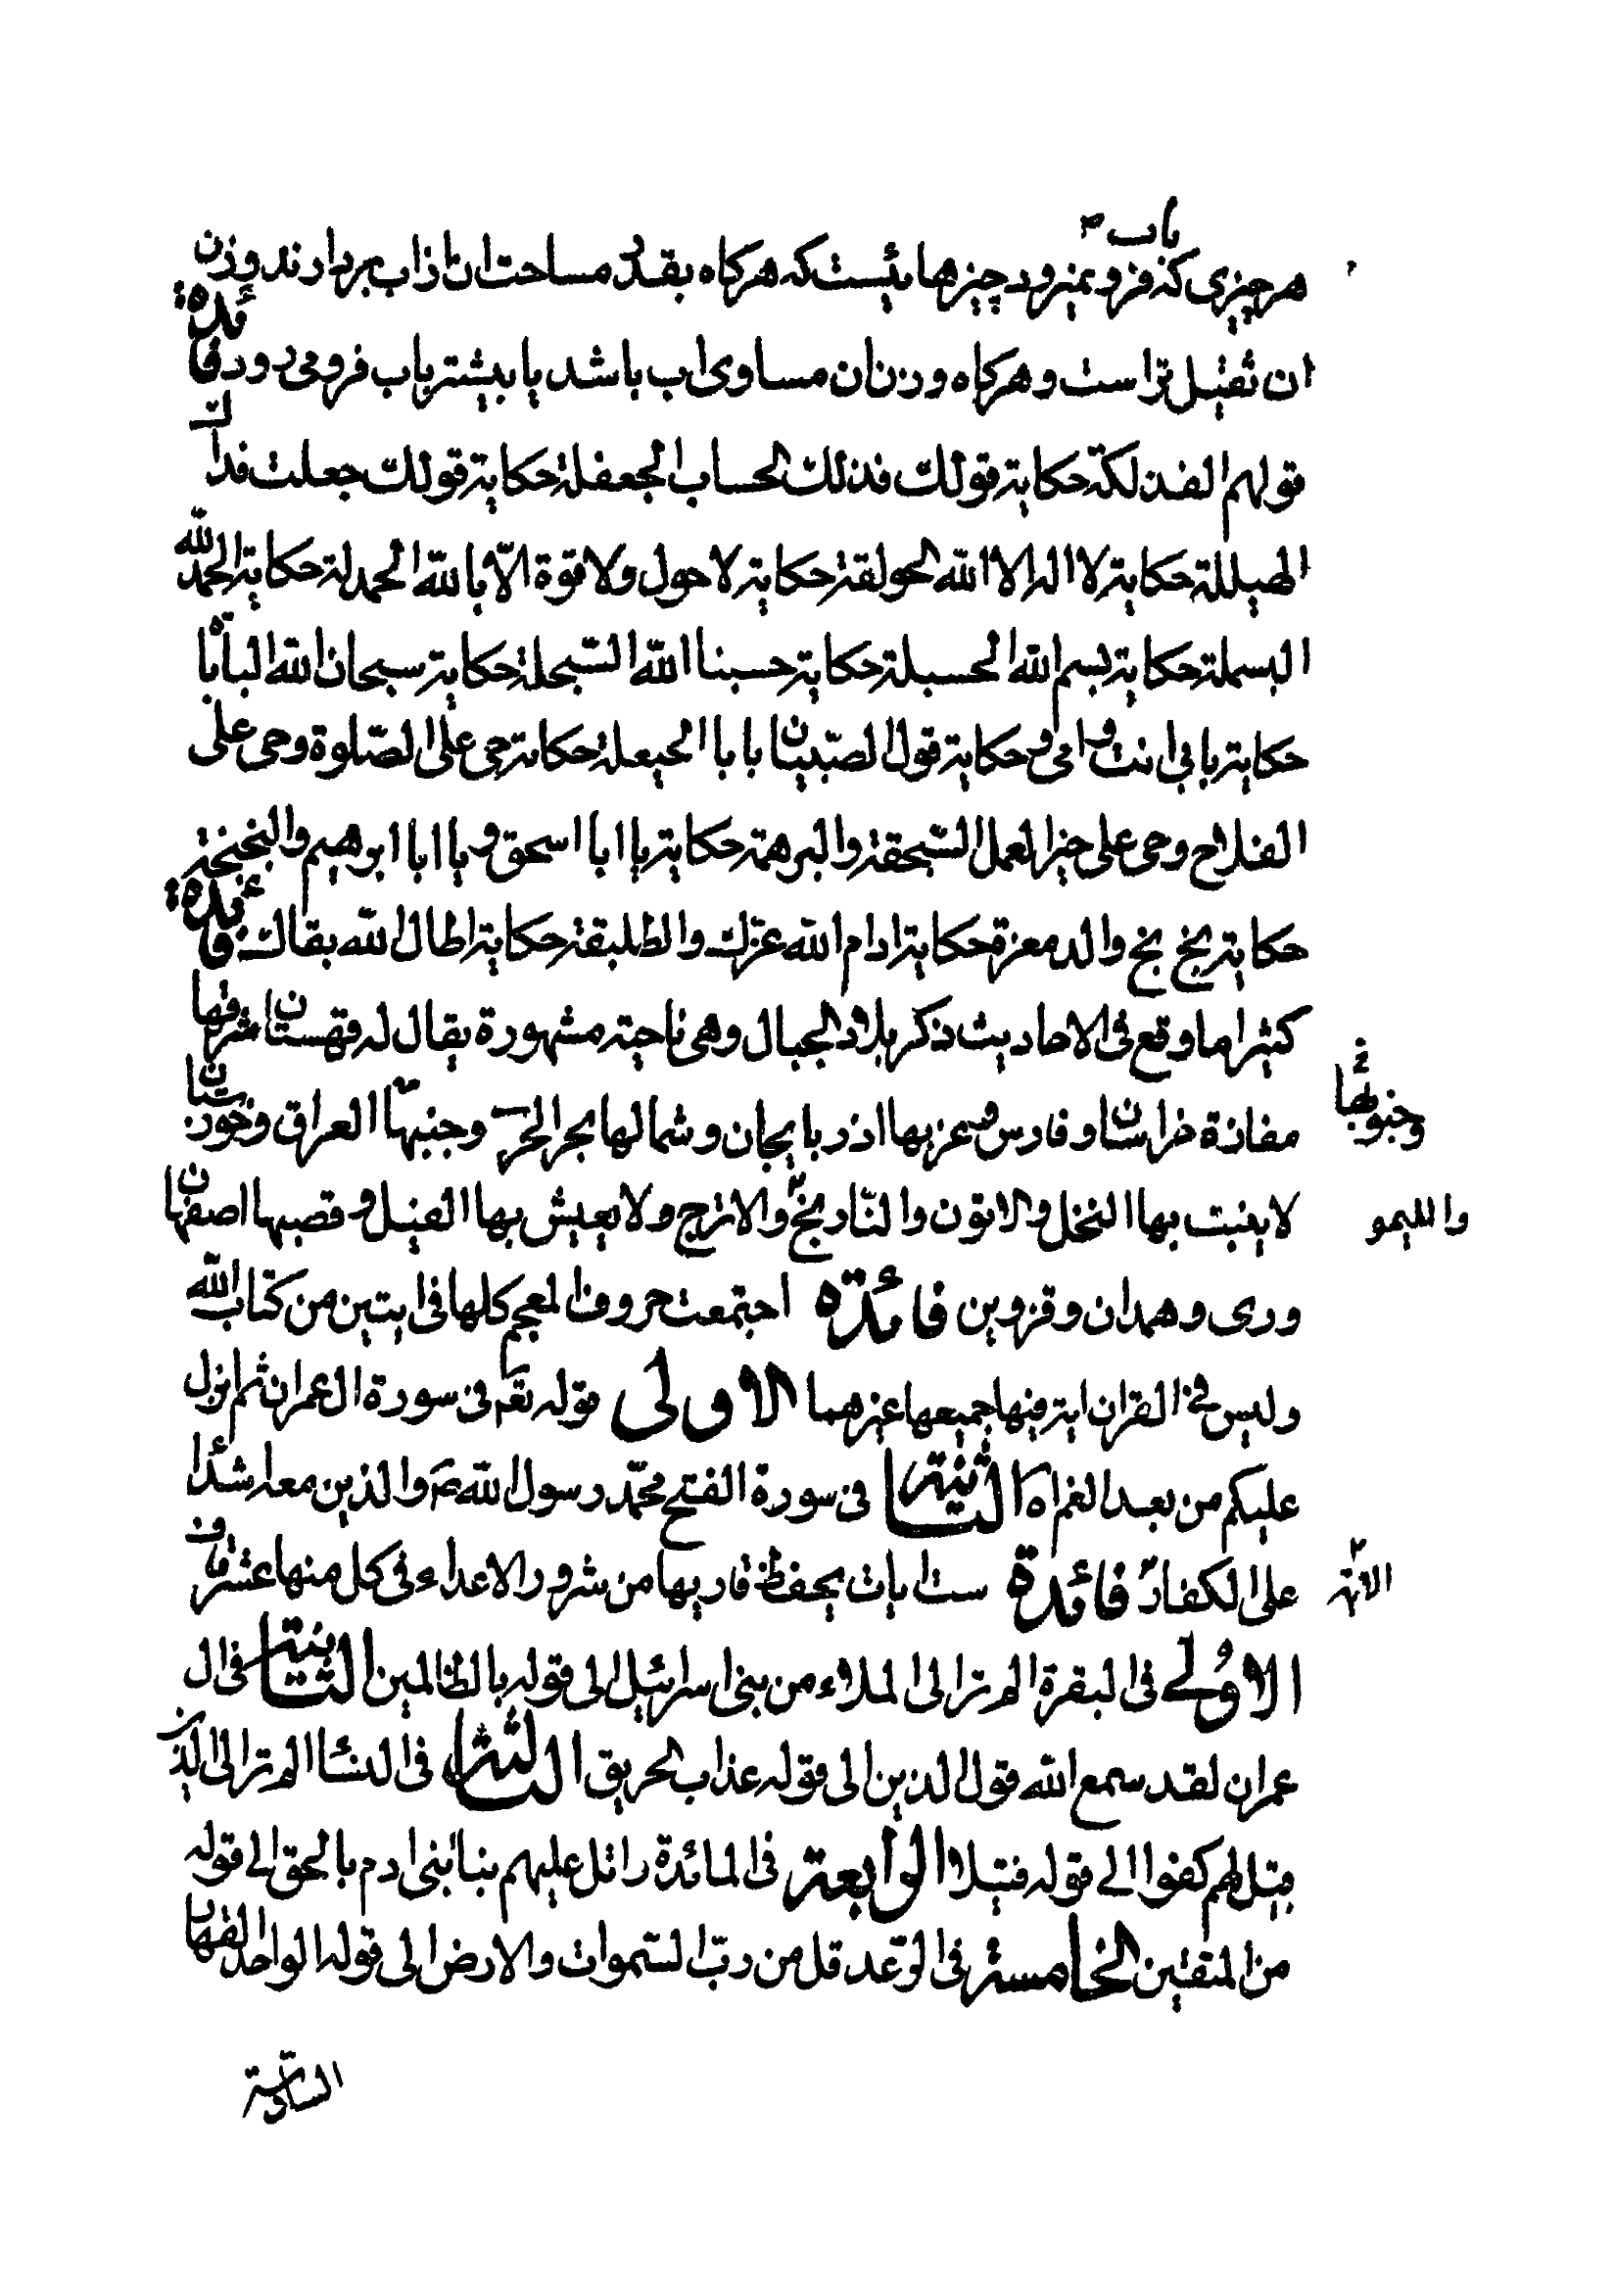 باب
هر چیزی که فرو نمیرود چیزهائیست که هرکاه بقدر مساحت ان از اب بردارند وزن
ان ثقیل تر است و هرکاه وزن ان مساوی اب باشد یا بیشتر باب فرو می رود فائدة
قولهم الفذلكة حكاية قولك فذلك الحساب الجعفلة حكاية قولك جعلت فداك
الهيللة حكاية لا اله الا الله الحولقة حكاية لا حول ولا قوة الّا بالله الحمدلة حكاية الحمد لله
البسملة حكاية بسم الله الحسبلة حكاية حسبنا الله السّبحلة حكاية سبحان الله البأبأة
حكاية بابي انت و امي و حكاية قول الصّبيان بابا الحيعلة حكاية حي على الصّلوة وحي على
الفلاح وحي على خير العمل السّبحقة والبرهمة حكاية يا ابا اسحق و يا ابا ابرهيم والبخبخة
حكاية بخ بخ والدمعزة حكاية ادام الله عزّك والطلبقة حكاية اطال الله بقاك فائدة
كثيرا ما وقع في الاحاديث ذكر بلاد الجبال وهي ناحية مشهورة يقال له قهستان شرقها
مفازة خراسان و فارس و غربها اذربايجان وشمالها بحر الخزر وجنبها العراق وخوزستان
وجنوبها
لا ينبت بها النخل والاتون والنّارنج والاترج ولا يعيش بها الفيل و قصبها اصفهان
والليمو
ورى وهمدان وقزوين فائدة اجتمعت حروف المعجم كلها في ايتين من كتاب الله
وليس في القران اية فيها جميعها غيرهما الاولى قوله تعم في سورة ال عمران ثم انزل
عليكم من بعد الغم اه الثانية في سورة الفتح محمّد رسول الله ص والذين معه اشدّاء
على الكفار فائدة ست ايات يحفظ قاريها من شرور الاعداء في كل منها عشر قاف
الاية
الاولى في البقرة الم تر الى الملاء من بني اسرائيل الى قوله بالظالمين الثانية في ال
عمران لقد سمع الله قول الذين الى قوله عذاب الحريق الثالثة في النساء الم تر الى الذين
قيل لهم كفوا الى قوله فتيلا الرابعة في المائدة واتل عليهم نبا بني ادم بالحق الى قوله
من المتقين الخامسة في الرّعد قل من ربّ السّموات والارض الى قوله الواحد القهار
السادسة